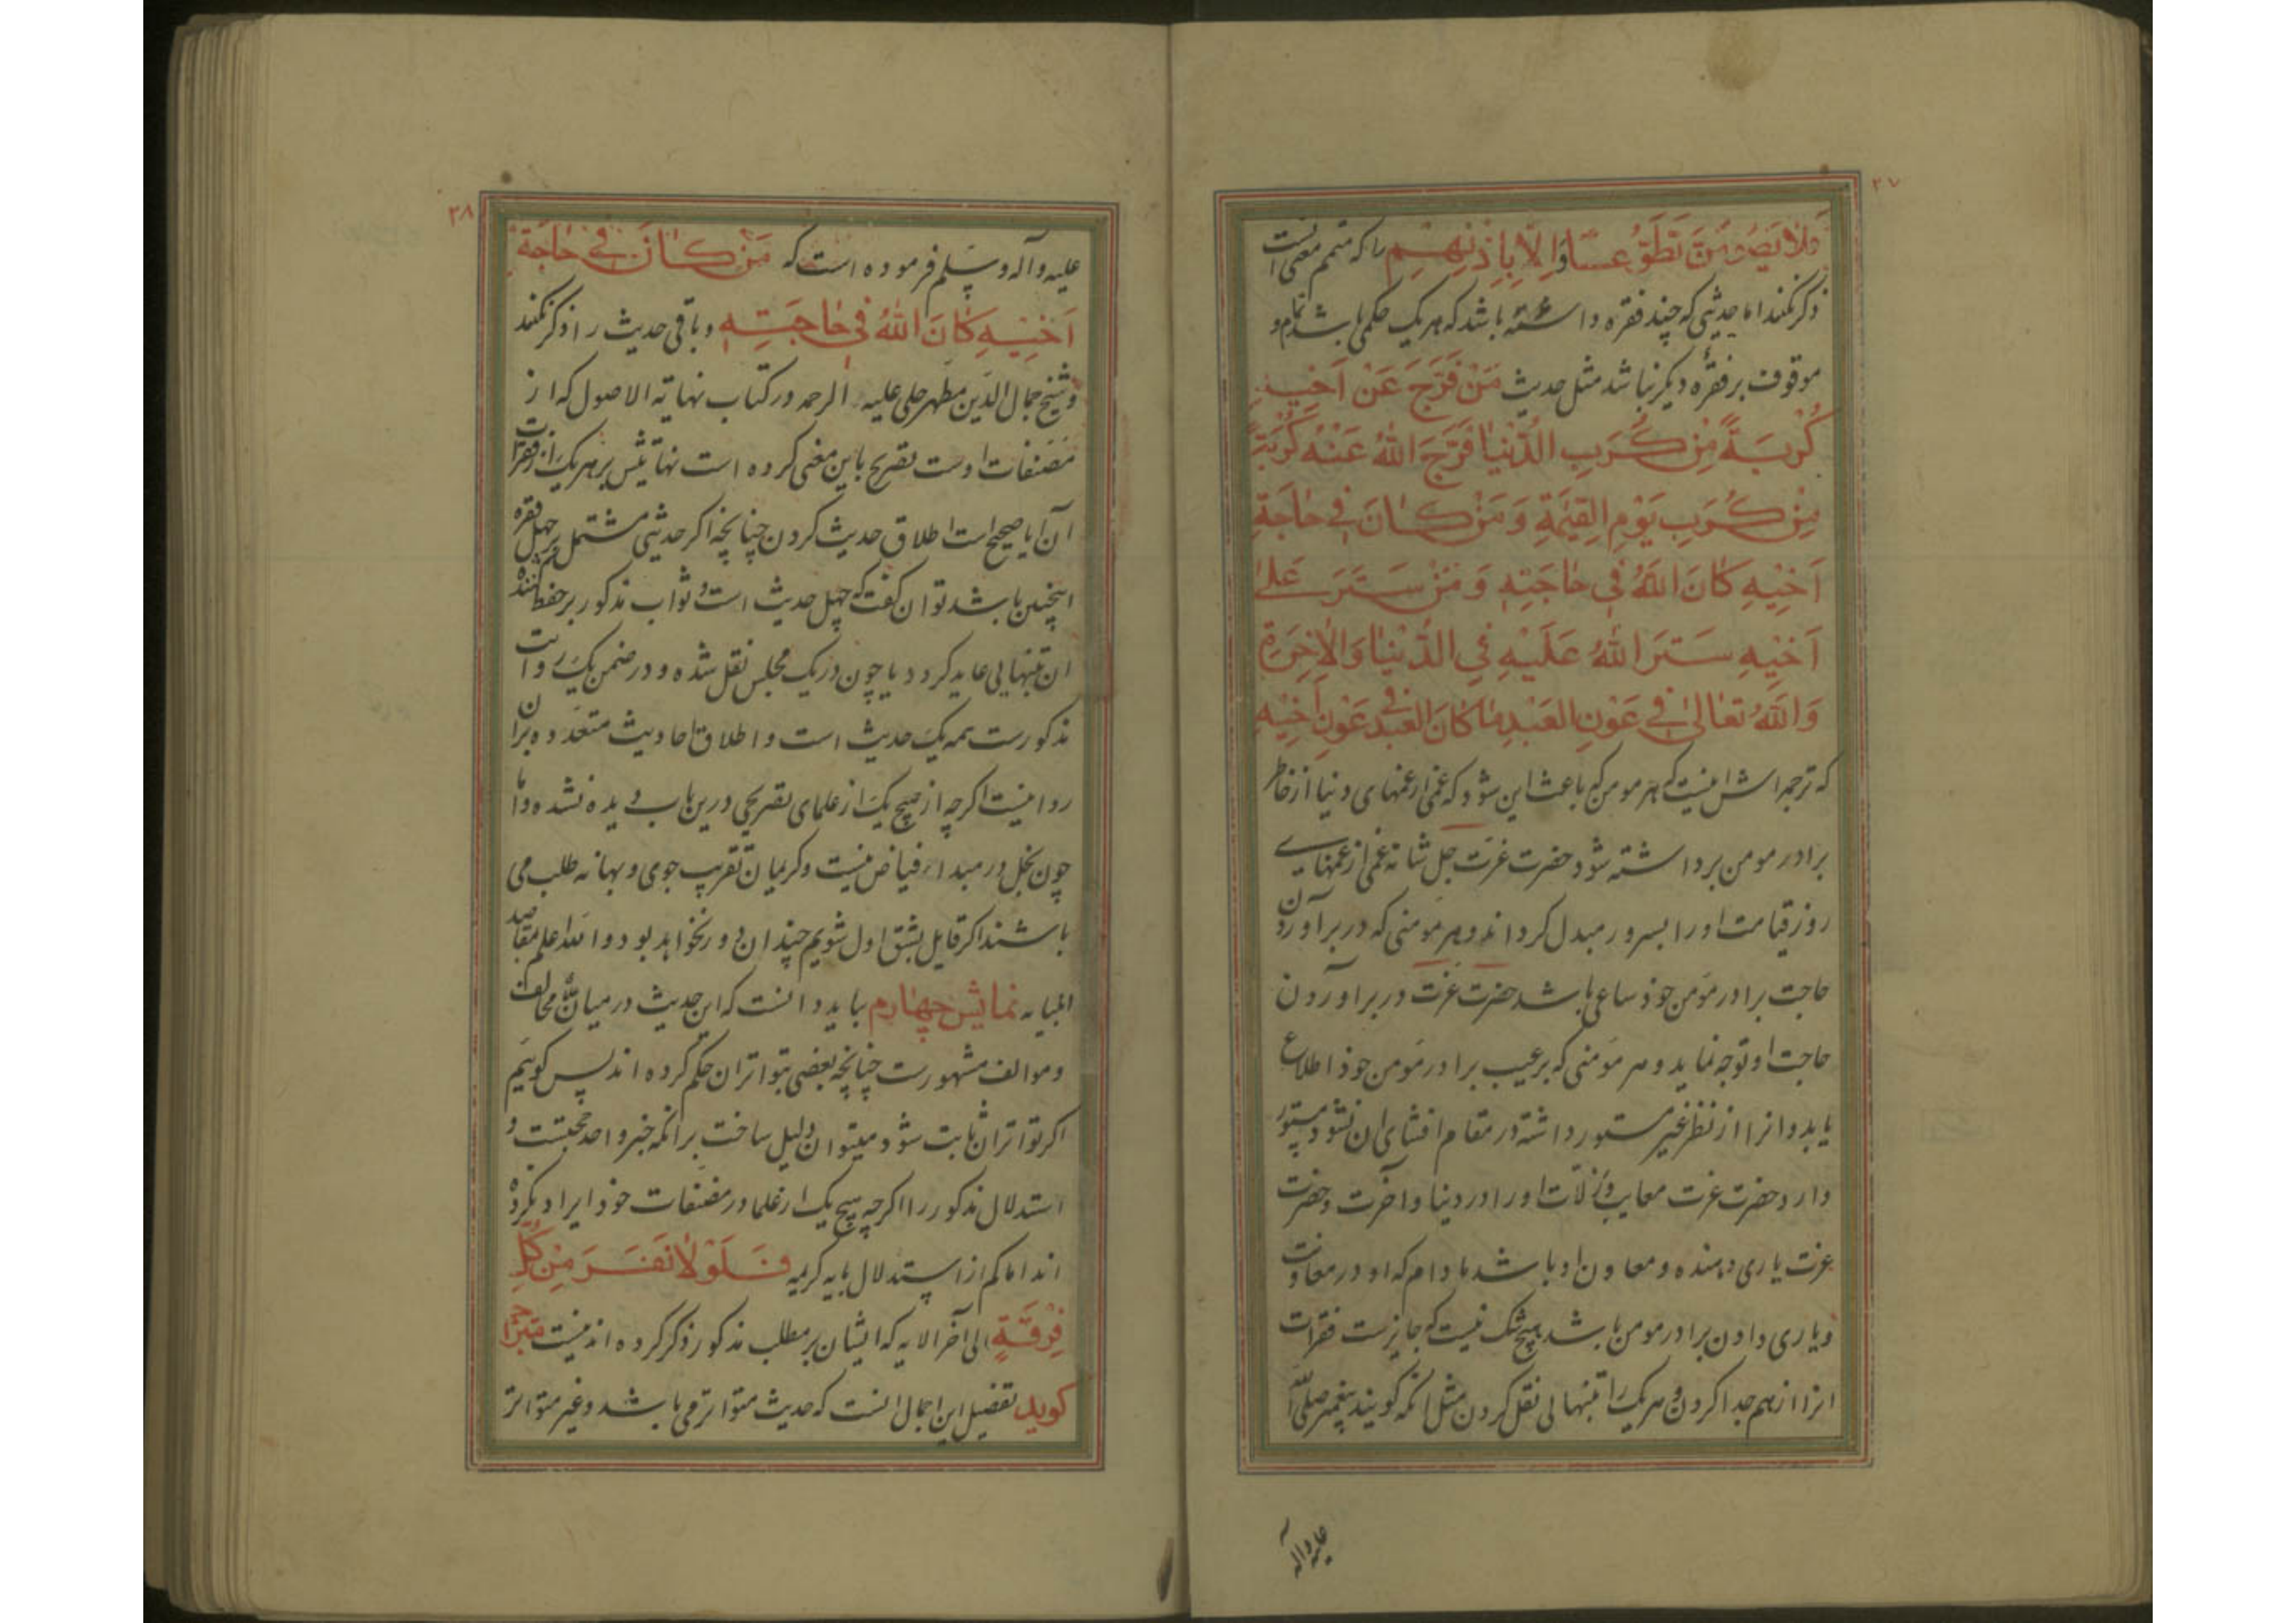 ۲۷
وَلَا یَصُومَنَّ تَطَوُّعًا اِلَّا بِاِذْنِهِمْ را که متمم معنی است
ذکر نکنند اما حدیثی که چند فقره داشته باشد که هر یک حکمی باشد تمام و
موقوف بر فقرهٔ دیگر نباشد مثل حدیث مَنْ فَرَّجَ عَنْ اَخِیهِ
کُرْبَةً مِنْ کُرَبِ الدُّنْیَا فَرَّجَ اللهُ عَنْهُ کُرْبَةً
مِنْ کُرَبِ یَوْمِ القِیٰمَةِ وَ مَنْ کَانَ فِی حَاجَةِ
اَخِیْهِ کَانَ اللهُ فِی حَاجَتِهِ وَ مَنْ سَتَرَ عَلیٰ
اَخِیْهِ سَتَرَ اللهُ عَلَیْهِ فِی الدُّنْیَا وَالاٰخِرَةِ
وَاللهُ تَعَالیٰ فِی عَوْنِ العَبْدِ مَا کَانَ العَبْدُ فِی عَوْنِ اَخِیْهِ
که ترجمه اش اینست که هر مومن که باعث این شود که غمی از غمهای دنیا از خاطر
برادر مومن برداشته شود حضرت عزت جل شانه غمی از غمهای
روز قیامت او را بسرور مبدل کرداند و هر مومنی که در برآوردن
حاجت برادر مومن خود ساعی باشد حضرت عزت در برآوردن
حاجت او توجه نماید و هر مؤمنی که بر عیب برادر مؤمن خود اطلاع
یابد و انرا از نظر غیر مستور داشته در مقام افشای ان نشود مستور
دارد حضرت عزت معایب و زلات او را در دنیا و آخرت و حضرت
عزت یاری دهنده و معاون او باشد مادام که او در معاونت
و یاری دادن برادر مومن باشد هیچ شک نیست که جایزست فقرات
انرا از هم جدا کردن و هر یک را بتنهایی نقل کردن مثل انکه کویند پیغمبر صلی الله
علیه وآله
۲۸
علیه وآله وسلم فرموده است که مَنْ کَانَ فِی حَاجَةِ
اَخِیْهِ کَانَ اللهُ فِی حَاجَتِهِ و باقی حدیث را ذکر نکنند
و شیخ جمال الدین مطهر حلی علیه الرحمه در کتاب نهایة الاصول که از
مصنفات اوست تصریح باین معنی کرده است نهایتش بر هر یک از فقرات
آن آیا صحیح است اطلاق حدیث کردن چنانچه اکر حدیثی مشتمل بر چهل فقره
اینچنین باشد توان کفت که چهل حدیث است و ثواب مذکور بر حفظ کننده
ان بتنهایی عاید کردد یا چون در یک مجلس نقل شده و در ضمن یک روایت
مذکورست همه یک حدیث است و اطلاق احادیث متعدده بر ان
روا نیست اکرچه از هیچ یک از علمای تصریحی درین باب دیده نشده و اما
چون بخل در مبداء فیاض نیست و کریمان تقریب جوی و بهانه طلب می
باشند اکر قایل بشق اول شویم چندان دور نخواهد بود والله اعلم بمقاصد
انبیایه نمایش چهارم باید دانست که این حدیث در میان مخالف
و موالف مشهورست چنانچه بعضی بتواتر ان حکم کرده اند پس کوییم
اکر تواتر ان ثابت شود میتوان دلیل ساخت بر انکه خبر واحد حجتست و
استدلال مذکور را اکرچه هیچ یک از علما در مصنفات خود ایراد نکرده
اند اما کم از استدلال بایه کریمه فَلَوْلَا نَفَرَ مِنْ کُلِّ
فِرْقَةٍ الی آخر الایه که ایشان بر مطلب مذکور ذکر کرده اند نیست مترجم
کوید تفصیل این اجمال انست که حدیث متواتر می باشد و غیر متواتر